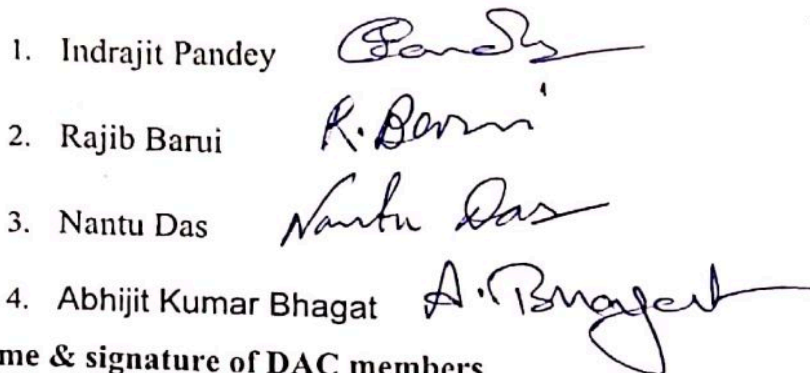 1. Indrajit Pandey
2. Rajib Barui R. Barui
3. Nantu Das Nantu Das
4. Abhijit Kumar Bhagat A. Bhagat
me & signature of DAC members